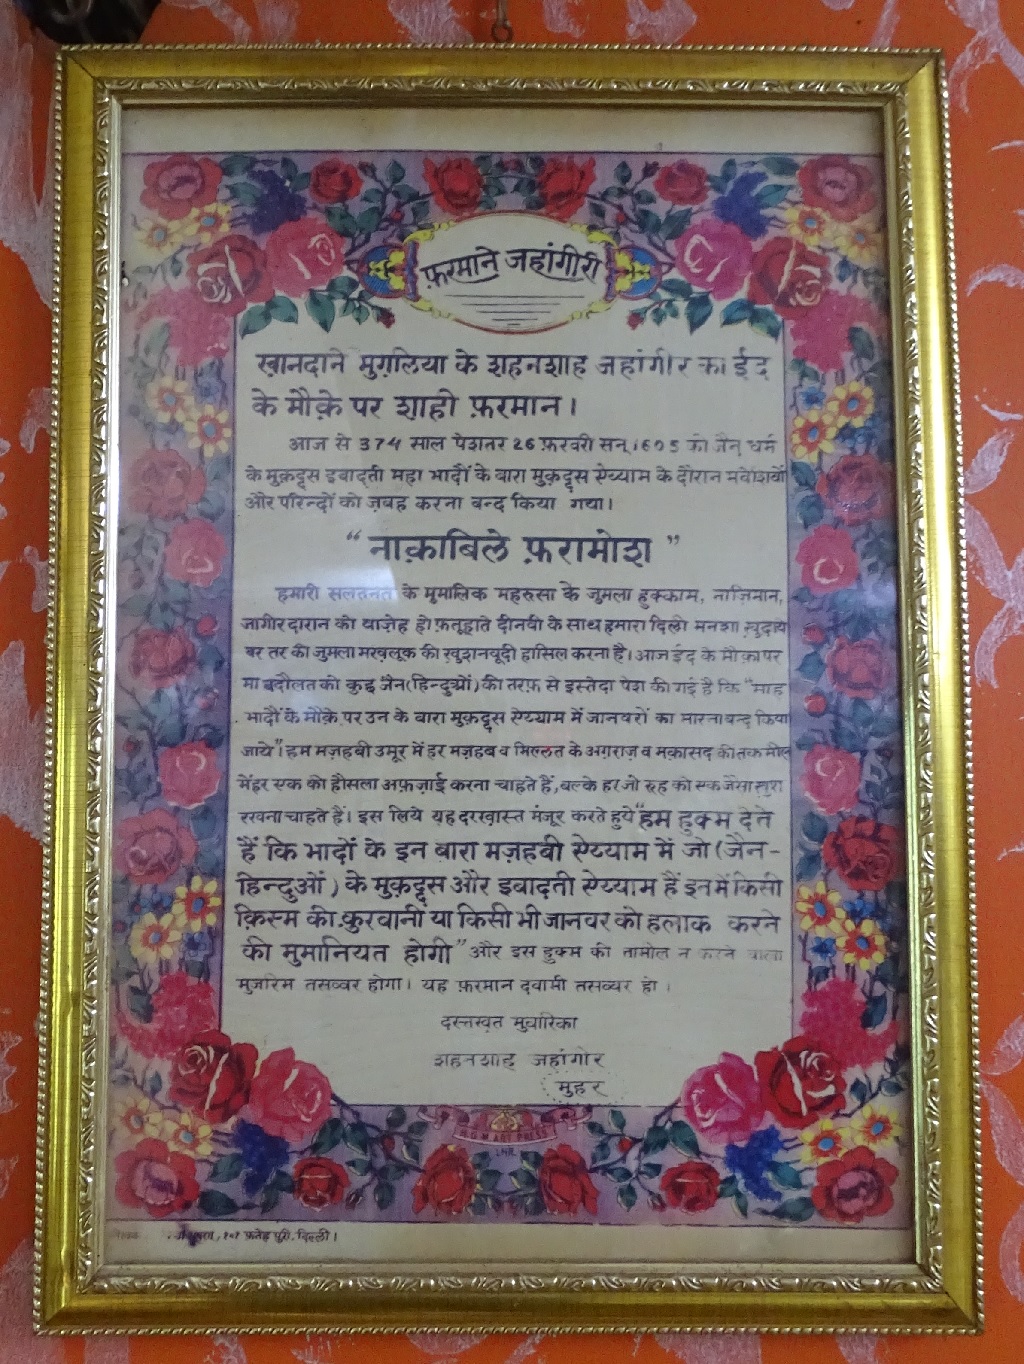 फ़रमाने जहांगीरी
ख़ानदाने मुग़लिया के शहनशाह जहांगीर का ईद
के मौक़े पर शाही फ़रमान।
आज से 374 साल पेशतर 26 फ़रवरी सन् 1605 को जैन धर्म
के मुक़द्दस इबादती महा भादौं के बारा मुक़द्दस ऐय्याम के दौरान मवेशियों
और परिन्दों को ज़बह करना बन्द किया गया।
“नाक़ाबिले फ़रामोश”
हमारी सलतनत के मुमालिक महरुसा के जुमला हुक्काम, नाज़िमान,
जागीरदारान को वाज़ेह हो फ़तूहाते दीनवी के साथ हमारा दिली मनशा ख़ुदाये
बर तर की जुमला मख़लूक की ख़ुशनवूदी हासिल करना है। आज ईद के मौक़ा पर
मा बदौलत को कुछ जैन (हिन्दुओं) की तरफ़ से इस्तेदा पेश की गई है कि “माह
भादौं के मौक़े पर उन के बारा मुक़द्दस ऐय्याम में जानवरों का मारना बन्द किया
जाये”। हम मज़हबी उमूर में हर मज़हब व मिल्लत के अग़राज़ व मकासद की तकमील
में हर एक को हौसला अफ़ज़ाई करना चाहते हैं, बल्के हर जी रूह को एक जैसा ख़ुश
रखना चाहते हैं। इस लिये यह दरख़ास्त मंजूर करते हुये “हम हुक्म देते
हैं कि भादों के इन बारा मज़हबी ऐय्याम में जो (जैन-
हिन्दुओं) के मुक़द्दस और इबादती ऐय्याम हैं इनमें किसी
क़िस्म की क़ुरबानी या किसी भी जानवर को हलाक करने
की मुमानियत होगी” और इस हुक्म की तामील न करने वाला
मुजरिम तसव्वर होगा। यह फ़रमान दवामी तसव्वर हो।
दस्तख़त मुबारिका
शहनशाह जहांगीर
मुहर
ART PRESS
LHR.
१०१ फ़तेह पुरी, दिल्ली।